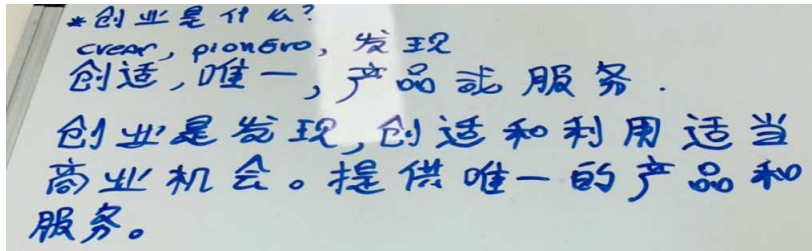 *创业是什么?
crear, pionero, 发现
创适,唯一,产品或服务.
创业是发现,创适和利用适当
商业机会。提供唯一的产品和
服务。